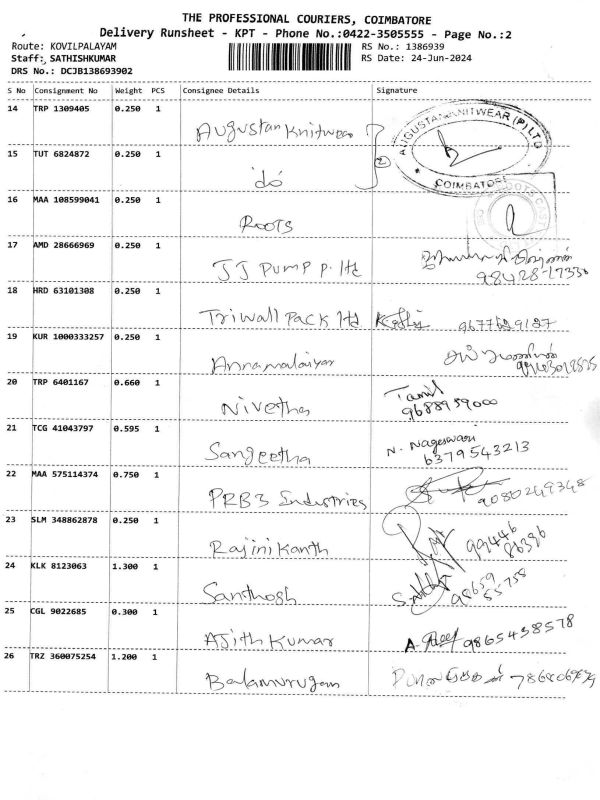 THE PROFESSIONAL COURIERS, COIMBATORE
Delivery Runsheet - KPT - Phone No.:0422-3505555 - Page No.:2
Route: KOVILPALAYAM
RS No.: 1386939
Staff: SATHISHKUMAR
RS Date: 24-Jun-2024
DRS No.: DCJB138693902
S No Consignment No Weight PCS Consignee Details Signature
14 TRP 1309405 0.250 1
Augustan Knitwear
AUGUSTAN KNITWEAR (P) LTD
COIMBATORE
15 TUT 6824872 0.250 1
do
2
16 MAA 108599041 0.250 1
ROOTS
17 AMD 28666969 0.250 1
JJ PUMP P. ltd
98428-17330
18 HRD 63101308 0.250 1
Triwall Pack ltd
19 KUR 1000333257 0.250 1
Annamalaiyar
20 TRP 6401167 0.660 1
Nivetha
Tamil
9688959000
21 TCG 41043797 0.595 1
Sangeetha
N. Nageswari
6379543213
22 MAA 575114374 0.750 1
PRB3 Industries
9080249348
23 SLM 348862878 0.250 1
Rajinikanth
99446
86396
24 KLK 8123063 1.300 1
Santhosh
98659
55758
25 CGL 9022685 0.300 1
Ajith Kumar
9865438578
26 TRZ 360075254 1.200 1
Balamurugan